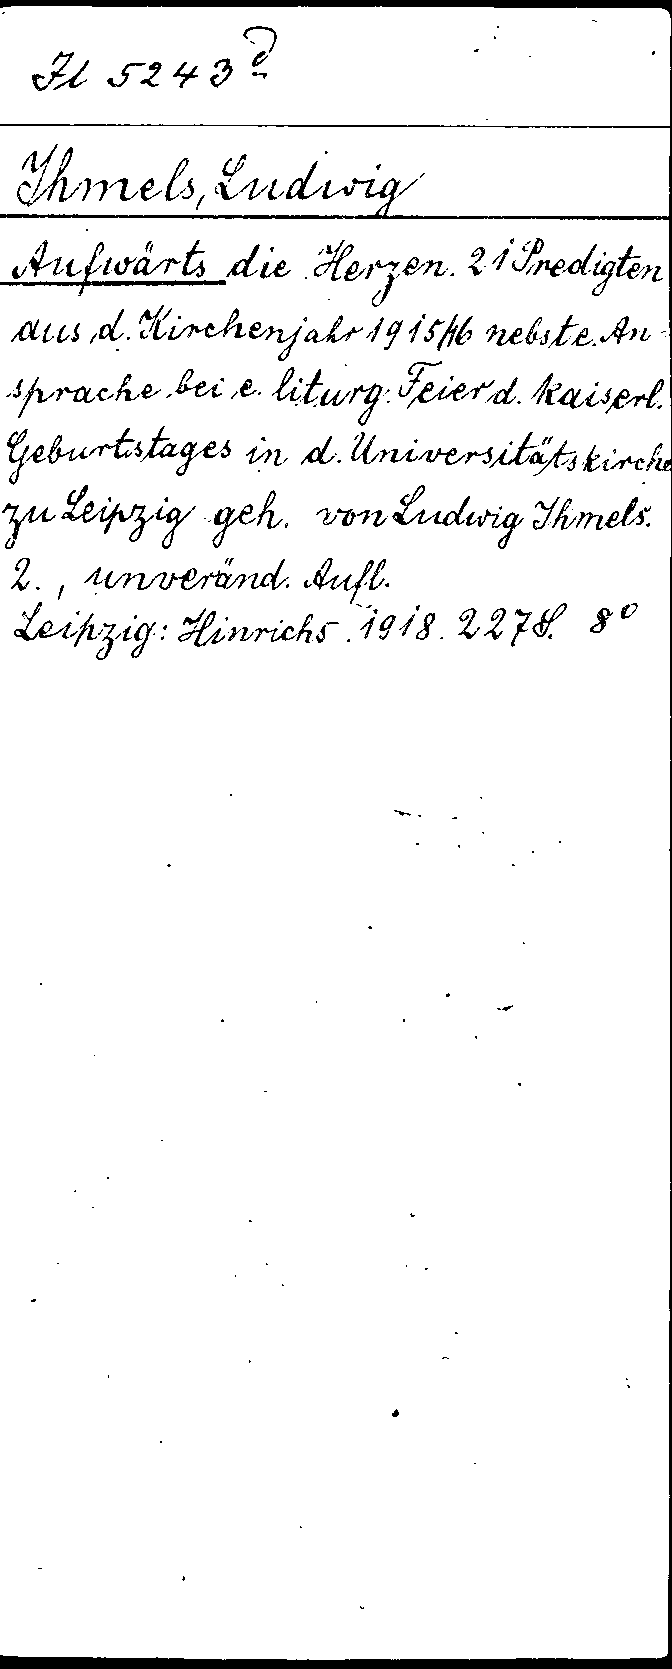 Il 5243 d
Ihmels, Ludwig
Aufwärts die Herzen. 21 Predigten
aus d. Kirchenjahr 1915/16 nebst e. An-
sprache bei e. liturg. Feier d. kaiserl.
Geburtstages in d. Universitätskirche
zu Leipzig geh. von Ludwig Ihmels.
2., unveränd. Aufl.
Leipzig: Hinrichs 1918. 227 S. 8°